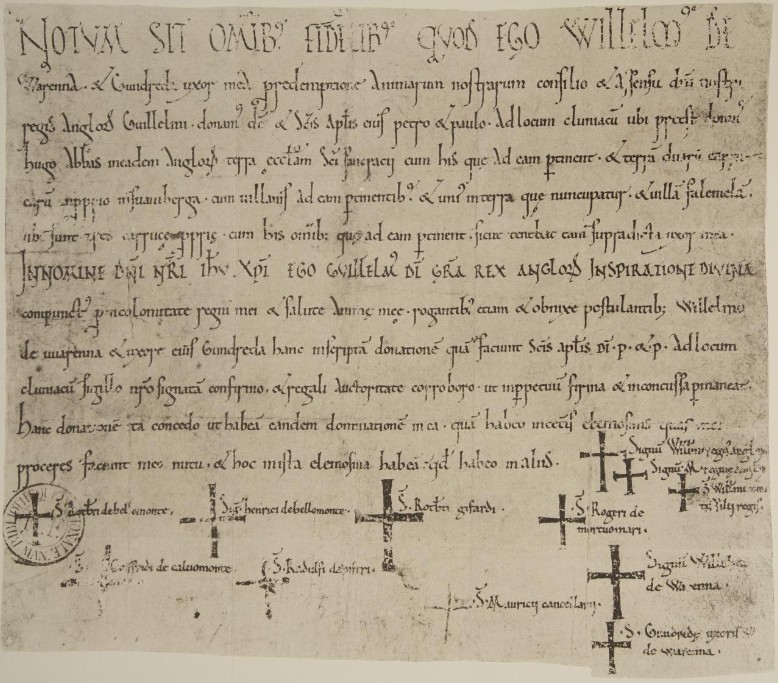 NOTVM SIT OMIB; FIDELIB; QVOD EGO WILLELM' DE
Warenna · & Gundreda uxor mea predemptione Animarum nostrarum consilio & assensu dni nostri
regis Anglorum Guillelmi · donam' dõ & scis aplis eius petro & paulo · Ad locum cluniacu ubi preest domn'
hugo Abbas in eadem Anglorum terra eccliam sci pancratii cum his que Ad eam ptinent · & terra duaru
in suamberga · cum uillanis ad eam ptinentib; & un' in terra que nuncupatur · & uilla falemela
ubi sunt tres carruce pprie · cum his omib; que ad eam ptinent · sicut tenebat eam supradicta uxor mea ·
IN NOMINE DNI NRI IHV XPI EGO GVILLELM' DI GRA REX ANGLORVM INSPIRATIONE DIVINA
compunct' p incolomitate regni mei & salute Anime mee · rogantib; etiam & obnixe postulantib; Willelmo
de uuarenna & uxore eius Gundreda hanc inscripta donatione qua faciunt scis aplis DI · p · & p · Ad locum
cluniacu sigillo nro signata confirmo · & regali Auctoritate corroboro · ut in ppetuu firma & inconcussa pmaneat ·
Hanc donatione ita concedo ut habea eandem dominatione in ea · qua habeo in ceteris elemosinis quas mei
proceres faciunt meo nutu · & hoc in ista elemosina habea qd habeo in aliis ·
Signu Willmi regis anglorum
Signu M regine
S Willmi comitis filii regis
S · Rotbti de bellomonte ·
Sig henrici de bellomonte ·
S · Rotbti gifardi ·
S · Rogeri de mortuomari ·
Gosfridi de caluomonte
S · Radulfi dapiferi ·
S · Mauricii cancellarii ·
Signu Willelmi
de Warenna ·
S · Gundrede uxoris
de warenna ·